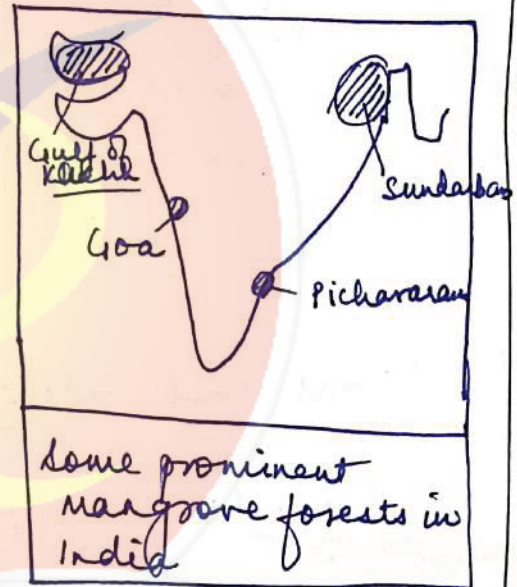 Gulf of
Kachh
Sundarban
Goa
Pichavaram
Some prominent
Mangrove forests in
India